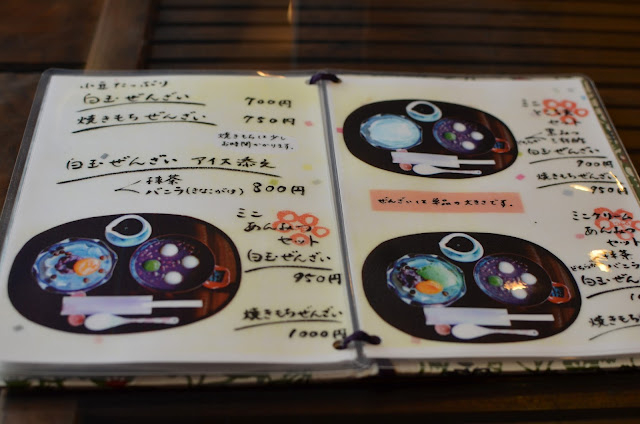 小豆たっぷり
白玉ぜんざい 700円
焼きもちぜんざい 750円
焼きもちは少し
お時間かかります。
白玉ぜんざい アイス添え
抹茶
バニラ(きなこがけ) 800円
ミニ
あんみつ
セット
白玉ぜんざい
950円
焼きもちぜんざい
1000円
ミニ
セット
白玉ぜんざい
900円
焼きもちぜんざい
950円
ぜんざいは単品の大きさです。
ミニクリーム
あんみつ
セット
抹茶
バニラ
白玉ぜんざい
焼きもちぜんざ